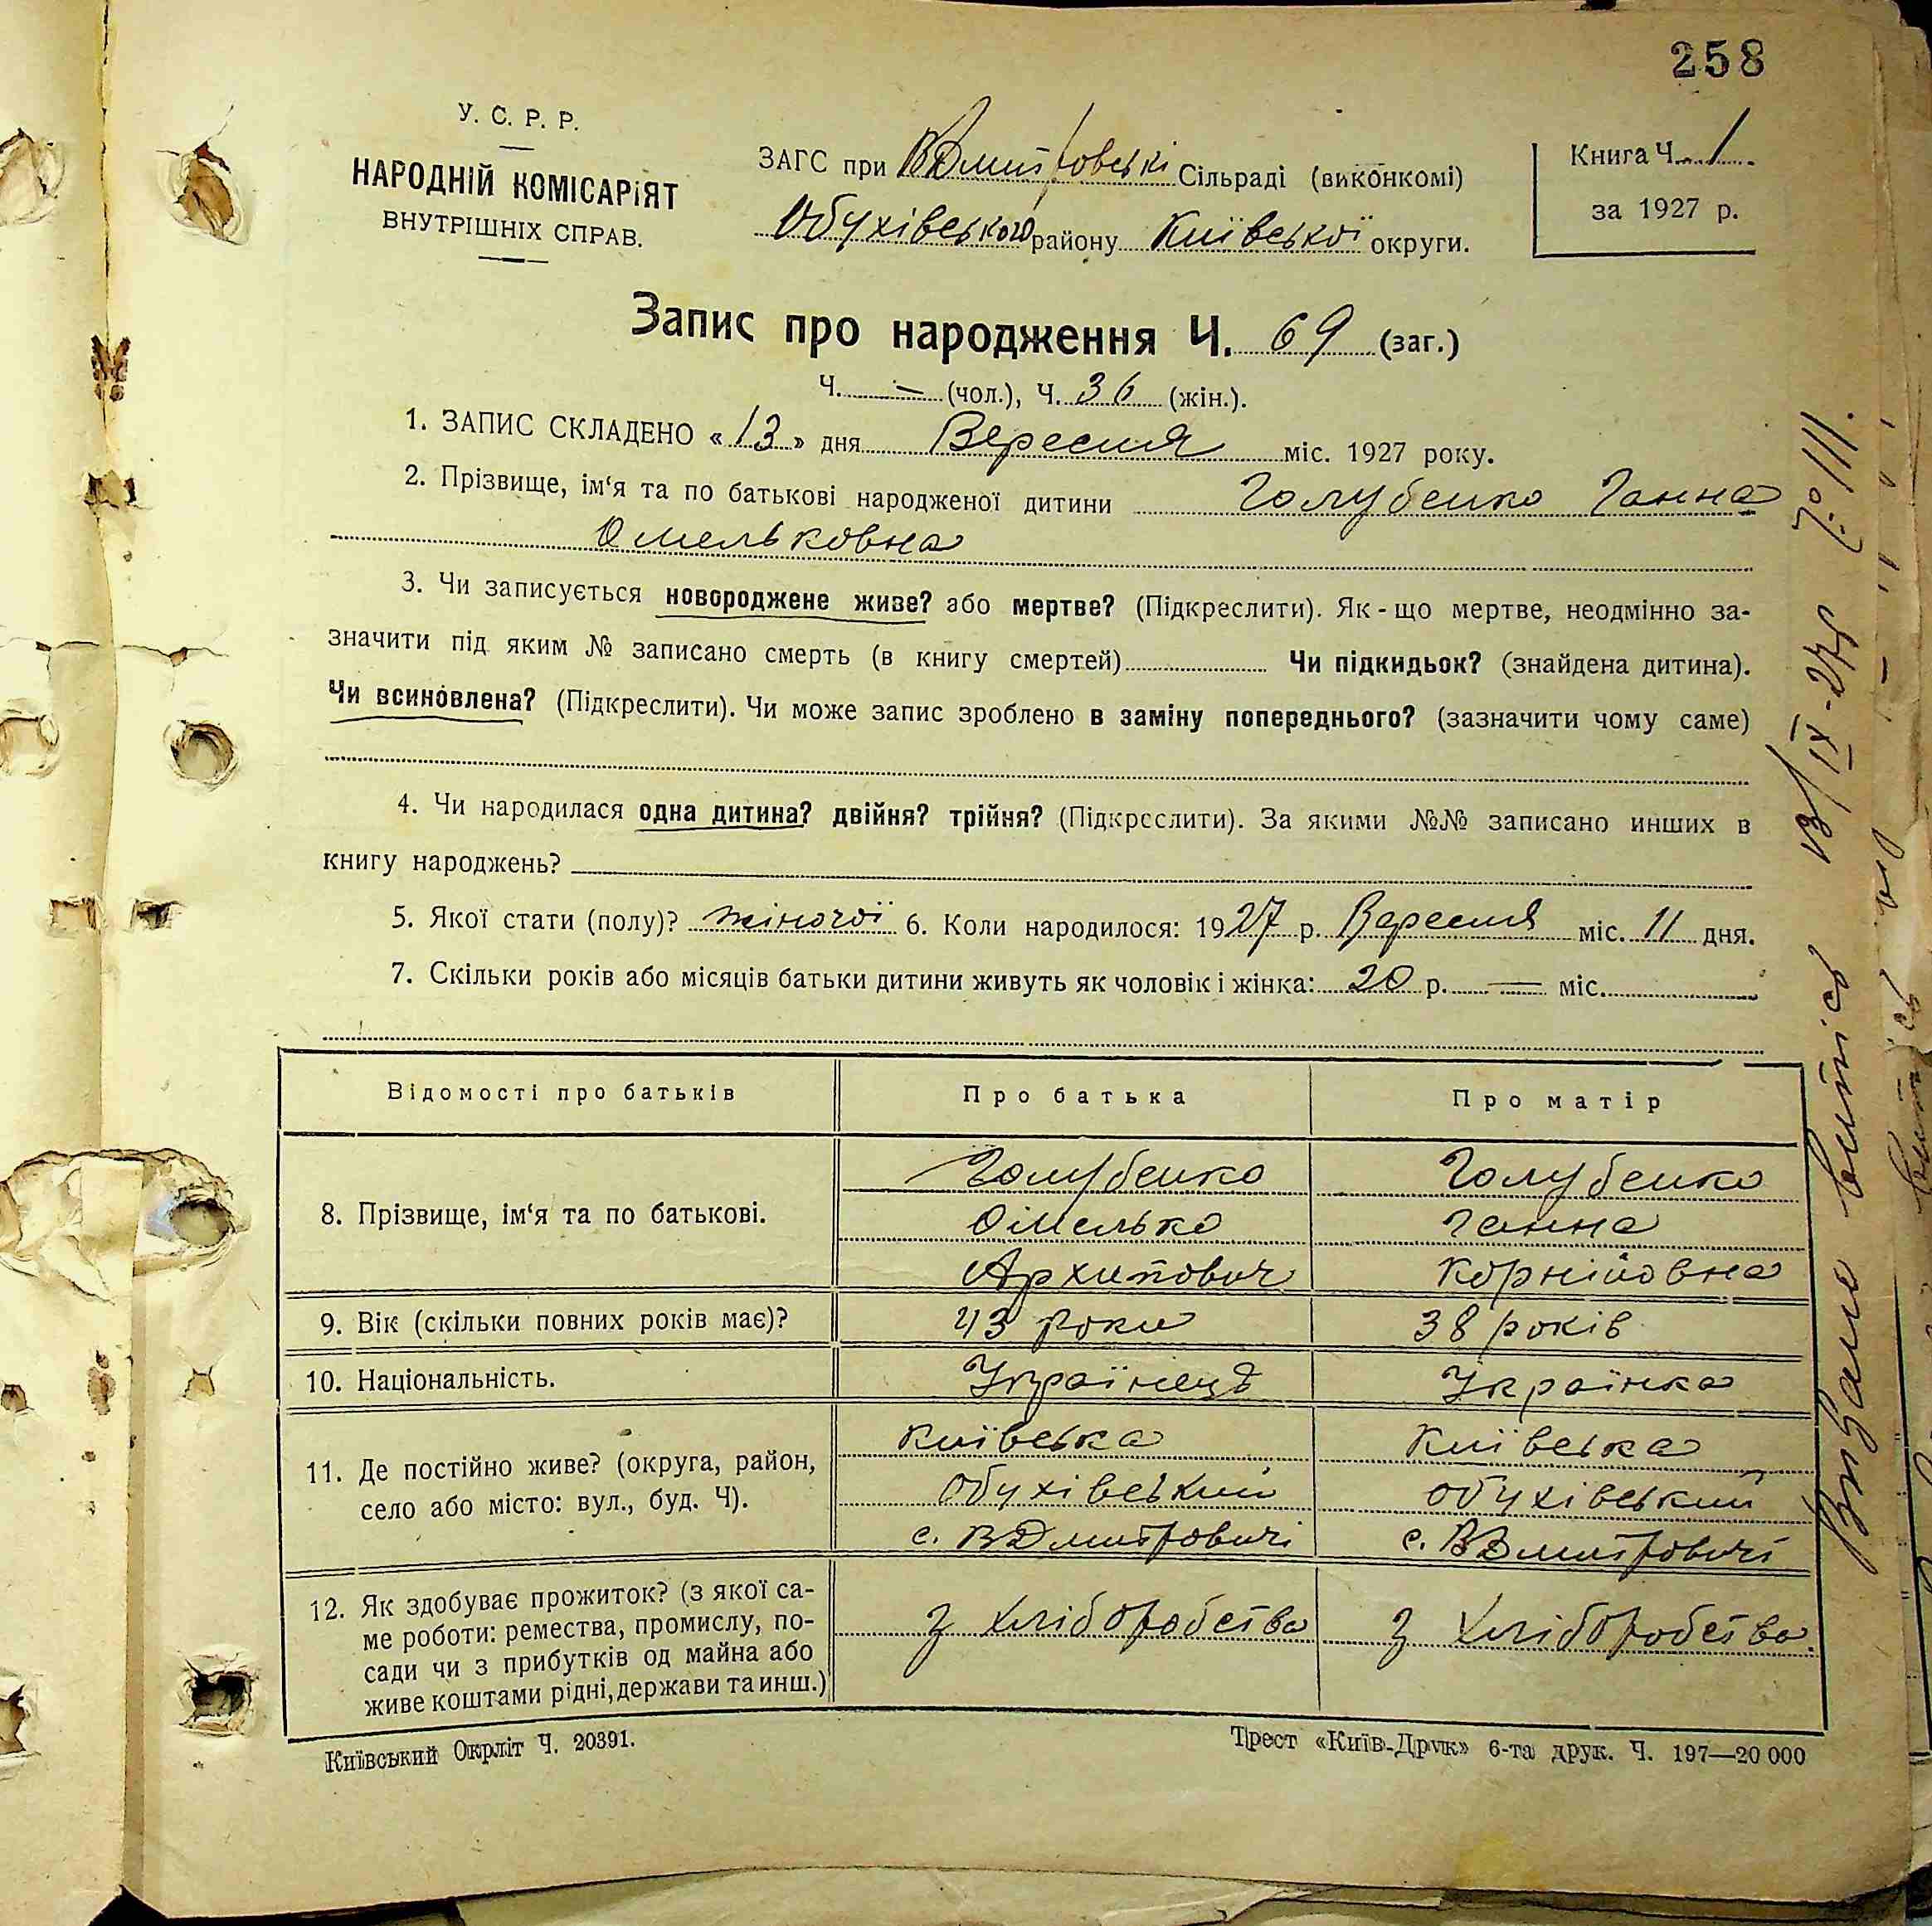 258
У. С. Р. Р.
НАРОДНІЙ КОМІСАРІЯТ
ВНУТРІШНІХ СПРАВ.
ЗАГС при ВДмитровські Сільраді (виконкомі)
Обухівського району Київської округи.
Книга Ч. 1
за 1927 р.
Запис про народження Ч. 69 (заг.)
Ч. — (чол.), Ч. 36 (жін.).
1. ЗАПИС СКЛАДЕНО «13» дня Вересня міс. 1927 року.
2. Прізвище, ім‘я та по батькові народженої дитини Голубенко Ганна
Омельковна
3. Чи записується новороджене живе? або мертве? (Підкреслити). Як-що мертве, неодмінно за-
значити під яким № записано смерть (в книгу смертей) Чи підкидьок? (знайдена дитина).
Чи всиновлена? (Підкреслити). Чи може запис зроблено в заміну попереднього? (зазначити чому саме)
4. Чи народилася одна дитина? двійня? трійня? (Підкреслити). За якими №№ записано инших в
книгу народжень?
5. Якої стати (полу)? жіночої 6. Коли народилося: 1927 р. Вересня міс. 11 дня.
7. Скільки років або місяців батьки дитини живуть як чоловік і жінка: 20 р. — міс.
Відомості про батьків Про батька Про матір
8. Прізвище, ім‘я та по батькові.
Голубенко Голубенко
Омелько Ганна
Архипович Корніївна
9. Вік (скільки повних років має)? 43 роки 38 років
10. Національність. Українець Українка
11. Де постійно живе? (округа, район,
село або місто: вул., буд. Ч).
Київська Київська
Обухівський Обухівський
с. ВДмитровичі с. ВДмитровичі
12. Як здобуває прожиток? (з якої са-
ме роботи: ремества, промислу, по-
сади чи з прибутків од майна або
живе коштами рідні, держави та инш.)
З хліборобства З хліборобства
Київський Окрліт Ч. 20391.
Трест «Київ-Друк» 6-та друк. Ч. 197—20 000
Видано витпісь 13/IX-27р